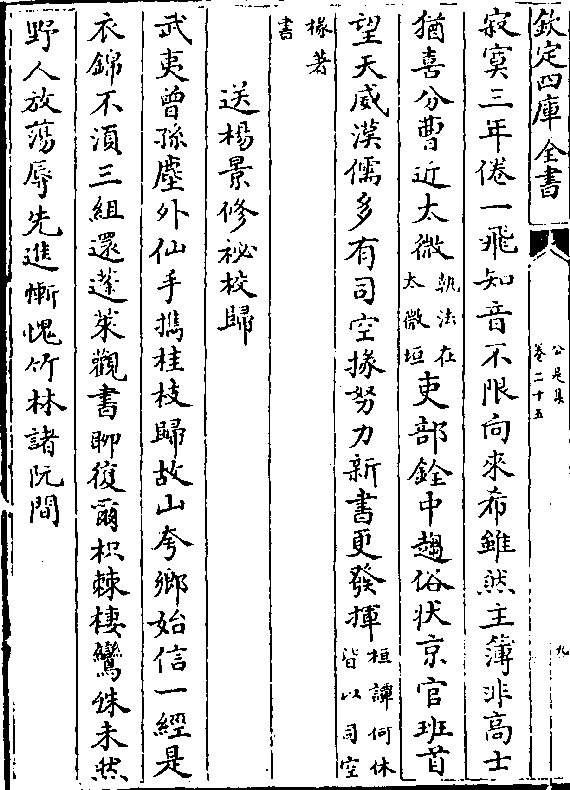 欽定四庫全書
公是集
卷二十五
九
寂寞三年倦一飛知音不限向來希雖然主簿非高士
猶喜分曹近太微執法在太微垣吏部銓中趨俗狀京官班首
望天威漢儒多有司空掾努力新書更發揮桓譚何休皆以司空
掾著書
送楊景修祕校歸
武夷曾孫塵外仙手攜桂枝歸故山夸鄉始信一經是
衣錦不湏三組還蓬萊觀書聊復爾枳棘棲鸞殊未然
野人放蕩辱先進慚愧竹林諸阮間